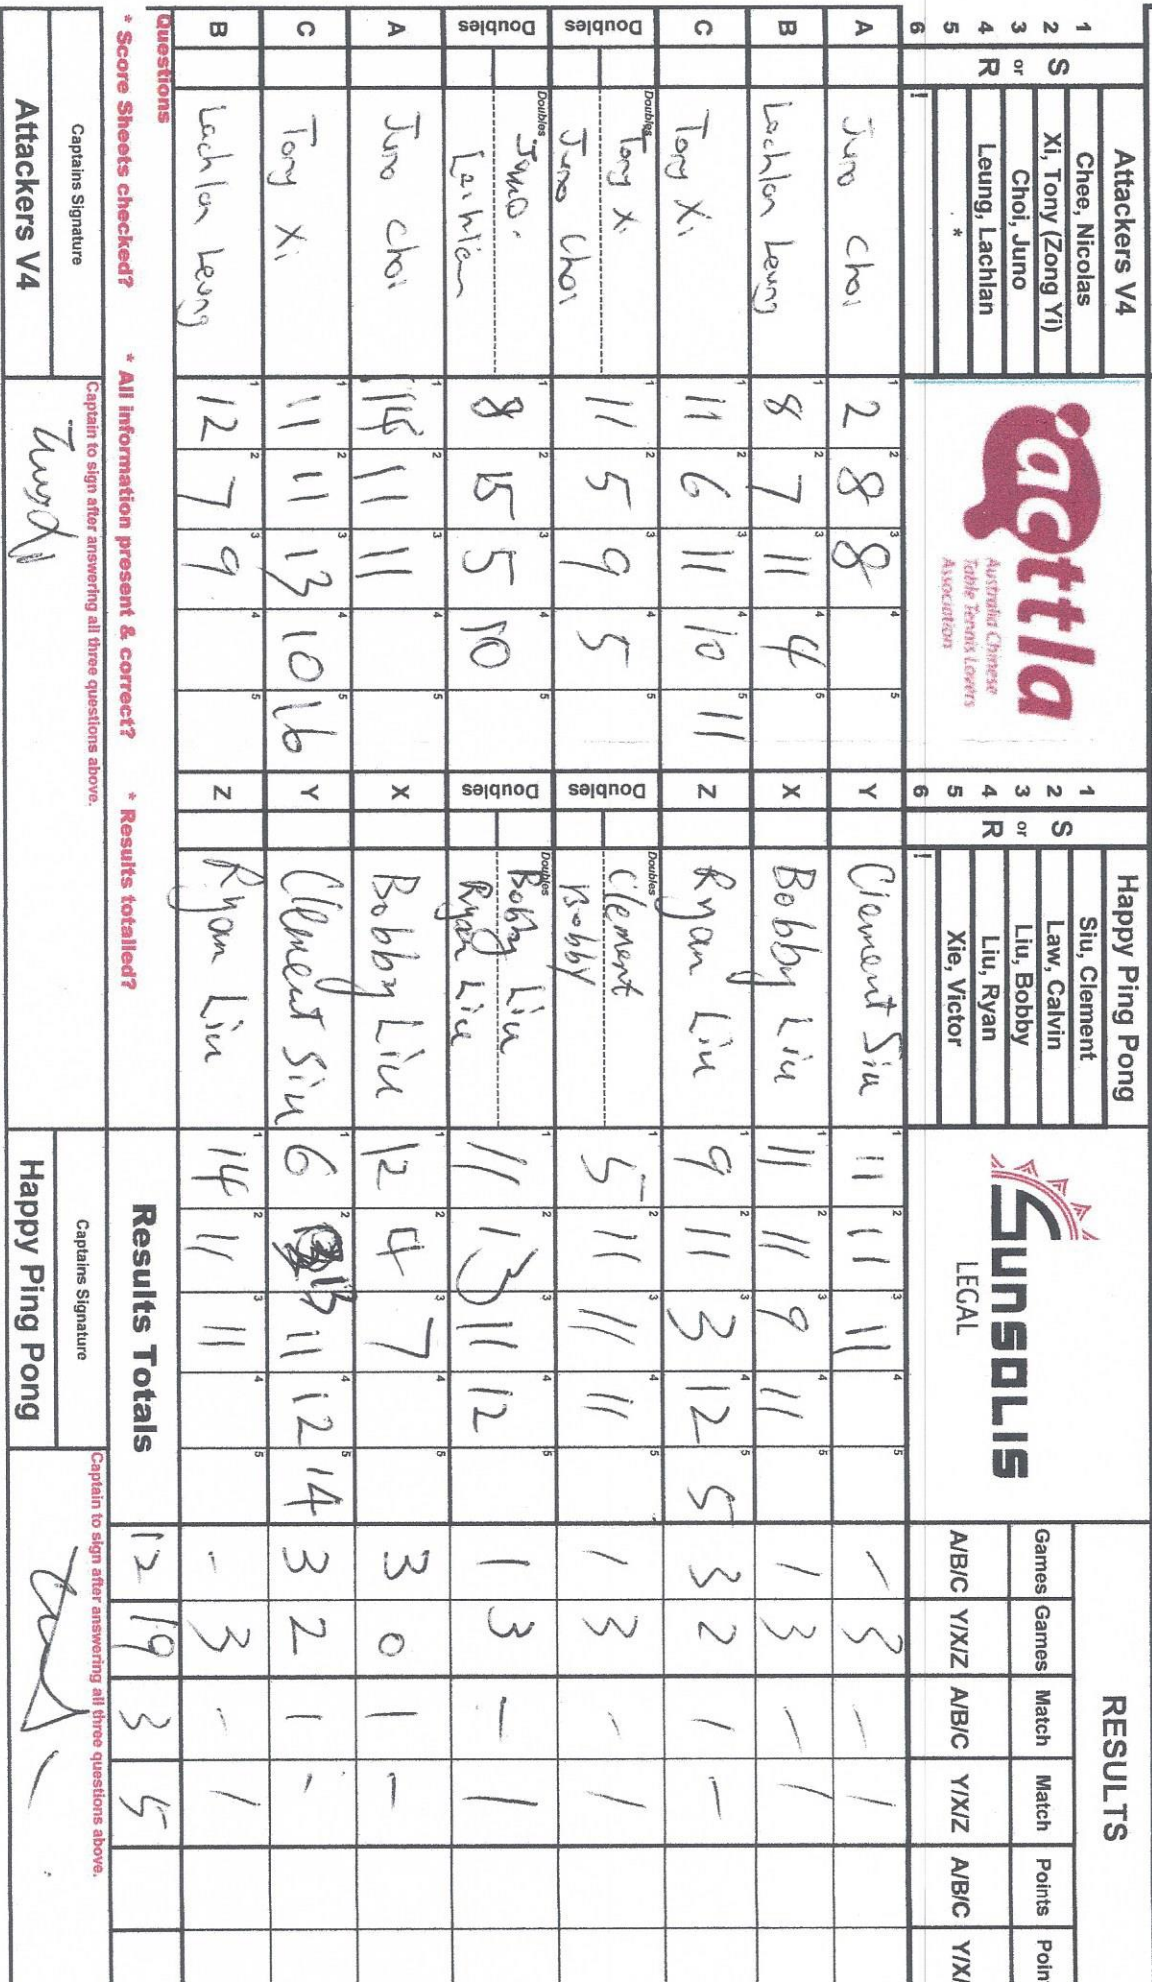 Attackers V4
1 Chee, Nicolas
2 S Xi, Tony (Zong Yi)
3 or Choi, Juno
4 R Leung, Lachlan
5 *
6 !
acttla
Australia Chinese
Table Tennis Lovers
Association
Happy Ping Pong
1 Siu, Clement
2 S Law, Calvin
3 or Liu, Bobby
4 R Liu, Ryan
5 Xie, Victor
6 !
SUNSOLIS
LEGAL
RESULTS
Games Games Match Match Points Poin
A/B/C Y/X/Z A/B/C Y/X/Z A/B/C Y/X/
1 2 3 4 5 1 2 3 4 5
A Juno Choi 2 8 8 Y Clement Siu 11 11 11 - 3 - 1
B Lachlan Leung 8 7 11 4 X Bobby Liu 11 11 9 11 1 3 - 1
C Tony Xi 11 6 11 10 11 Z Ryan Liu 9 11 3 12 5 3 2 1 -
Doubles Doubles Tony Xi 11 5 9 5 Doubles Doubles Clement 5 11 11 11 1 3 - 1
Juno Choi Bobby
Doubles Doubles Juno 8 15 5 10 Doubles Doubles Bobby Liu 11 13 11 12 1 3 - 1
Ryan Liu
A Juno Choi 14 11 11 X Bobby Liu 12 4 7 3 0 1 -
C Tony Xi 11 11 13 10 16 Y Clement Siu 6 13 11 12 14 3 2 1 -
B Lachlan Leung 12 7 9 Z Ryan Liu 14 11 11 - 3 - 1
Questions
* Score Sheets checked? * All information present & correct? * Results totalled?
Results Totals 12 19 3 5
Captains Signature
Attackers V4
Captain to sign after answering all three questions above.
Captains Signature
Happy Ping Pong
Captain to sign after answering all three questions above.